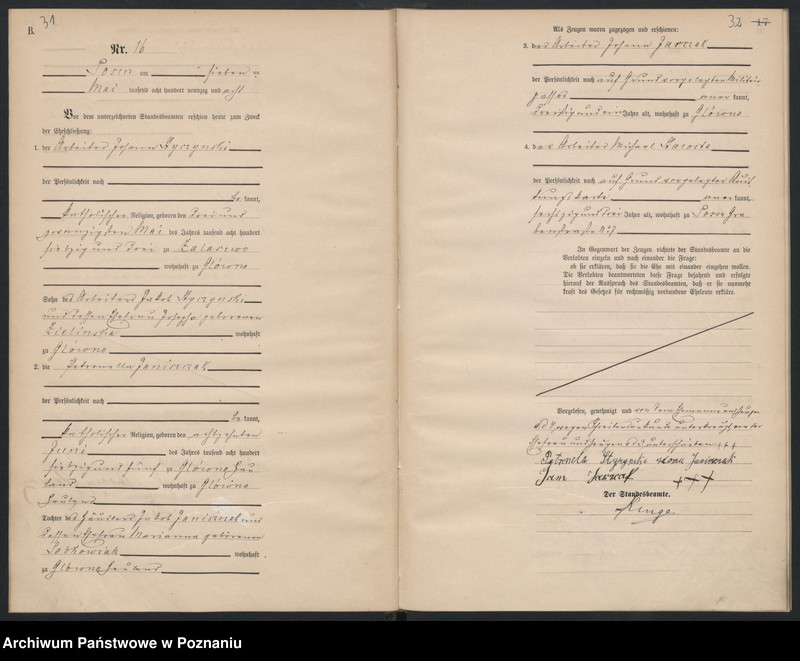 31
B.
Nr. 16
Posen am sieben
Mai tausend acht hundert neunzig und acht
Vor dem unterzeichneten Standesbeamten erschien heute zum Zweck
der Eheschließung:
1. der Arbeiter Johann
der Persönlichkeit nach
be kannt,
katholischer Religion, geboren den drei und
zwanzigsten Mai des Jahres tausend acht hundert
siebzig und drei zu Zalasewo
wohnhaft zu Glówno
Sohn des Arbeiters Jakob
und dessen Ehefrau Josepha geborenen
Zielinska wohnhaft
zu Glówno
2. die Petronella Janiszczak
der Persönlichkeit nach
be kannt,
katholischer Religion, geboren den achtzehnten
Juni des Jahres tausend acht hundert
siebzig und fünf zu Glówno Hau
land wohnhaft zu Glówno
Hauland
Tochter des Häuslers Jakob und
dessen Ehefrau Marianna geborenen
wohnhaft
zu Glówno Hauland
32 17
Als Zeugen waren zugezogen und erschienen:
3. der Arbeiter Johann
der Persönlichkeit nach auf Grund vorgelegter Militär
passes aner kannt,
dreißig und ein Jahre alt, wohnhaft zu Glówno
4. der Arbeiter Michael
der Persönlichkeit nach auf Grund vorgelegter Quit
tungskarte aner kannt,
sechszig und drei Jahre alt, wohnhaft zu Posen Gra
benstraße
In Gegenwart der Zeugen richtete der Standesbeamte an die
Verlobten einzeln und nach einander die Frage:
ob sie erklären, daß sie die Ehe mit einander eingehen wollen.
Die Verlobten beantworteten diese Frage bejahend und erfolgte
hierauf der Ausspruch des Standesbeamten, daß er sie nunmehr
kraft des Gesetzes für rechtmäßig verbundene Eheleute erkläre.
Vorgelesen, genehmigt und von dem Ehemanne und Zeugen
wegen Schreibensunkunde unterkreuzt, von der
Ehefrau und Zeugen unterschrieben +++
Petronela
Jan +++
Der Standesbeamte.
Archiwum Państwowe w Poznaniu